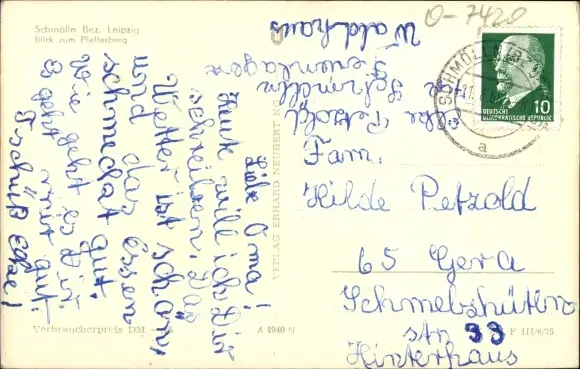 Schmölln Bez. Leipzig
Blick zum Pfefferberg
Liebe Oma!
Heute will ich Dir
schreiben. Das
Wetter ist schön,
und das Essen
schmeckt gut.
Wie geht es Dir.
Es geht mir gut.
Tschüß Elke!
Elke Petzold
Schmölln
Ferienlager
Waldhaus
0-7420
SCHMÖLLN
a
DEUTSCHE
DEMOKRATISCHE REPUBLIK
10
Fam.
Hilde Petzold
65 Gera
Schmelzhütten
str. 33
Hinterhaus
VERLAG ERHARD NEUBERT KG
Verbraucherpreis DM
A 4940 N
F 111/6/75